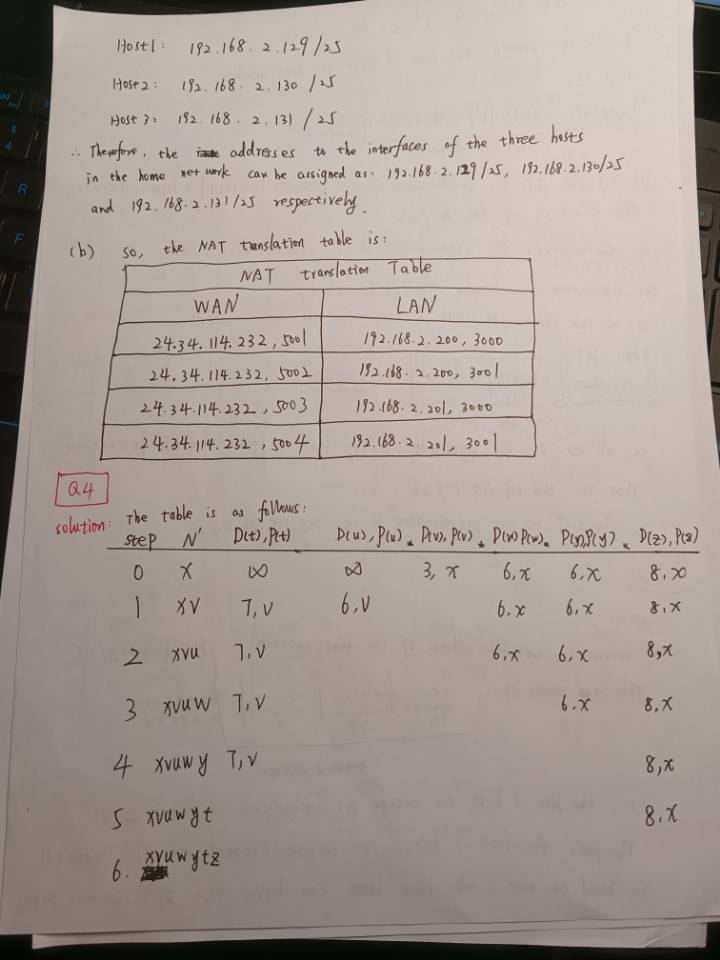 Host1: 192.168.2.129/25
Host2: 192.168.2.130/25
Host3: 192.168.2.131/25
∴ Therefore, the addresses to the interfaces of the three hosts
in the home network can be assigned as: 192.168.2.129/25, 192.168.2.130/25
and 192.168.2.131/25 respectively.
(b) so, the NAT translation table is:
NAT translation Table
WAN LAN
24.34.114.232, 5001 192.168.2.200, 3000
24.34.114.232, 5002 192.168.2.200, 3001
24.34.114.232, 5003 192.168.2.201, 3000
24.34.114.232, 5004 192.168.2.201, 3001
Q4
solution: The table is as follows:
step N' D(t),P(t) D(u),P(u) D(v),P(v) D(w)P(w) P(y),P(y) D(z),P(z)
0 x ∞ ∞ 3,x 6,x 6,x 8,x
1 xv 7,v 6,v 6,x 6,x 8,x
2 xvu 7,v 6,x 6,x 8,x
3 xvuw 7,v 6,x 8,x
4 xvuwy 7,v 8,x
5 xvuwyt 8,x
6. xvuwytz